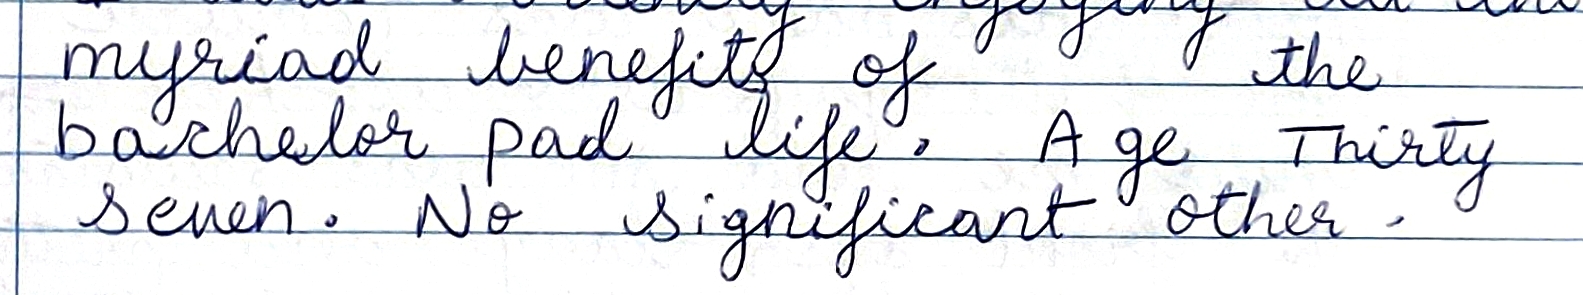 enjoying
myriad benefits of the
bachelor pad life. Age Thirty
seven. No significant other.